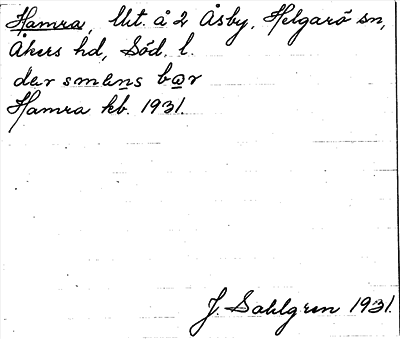 Hamra, Utt. å 2 Åsby, Helgarö sn,
Åkers hd, Söd. l.
dær smens bər
Hamra kb. 1931.
J. Sahlgren 1931.